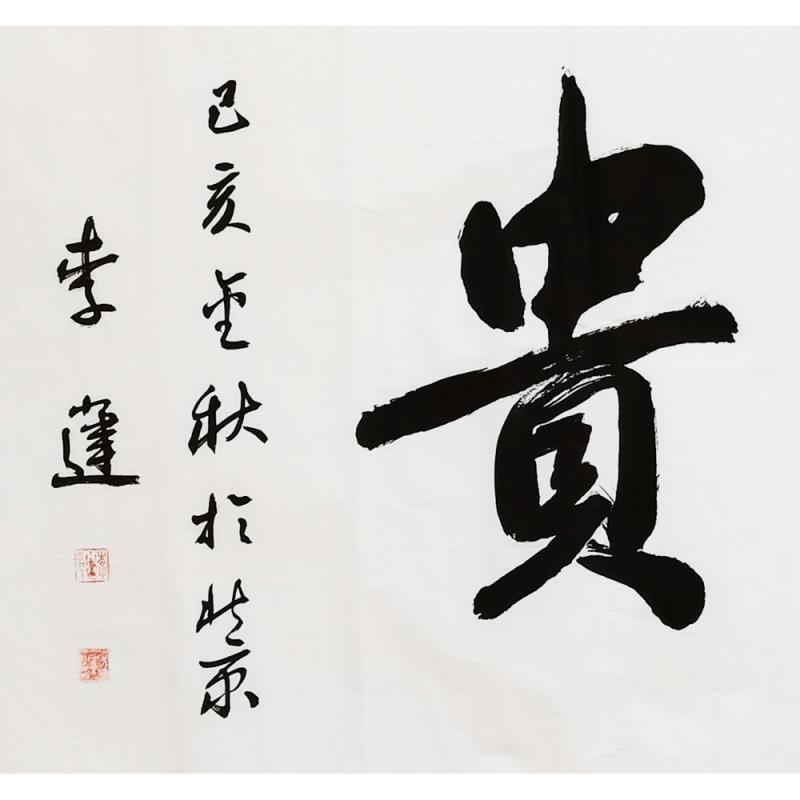 貴
己亥金秋於北京
李蓬